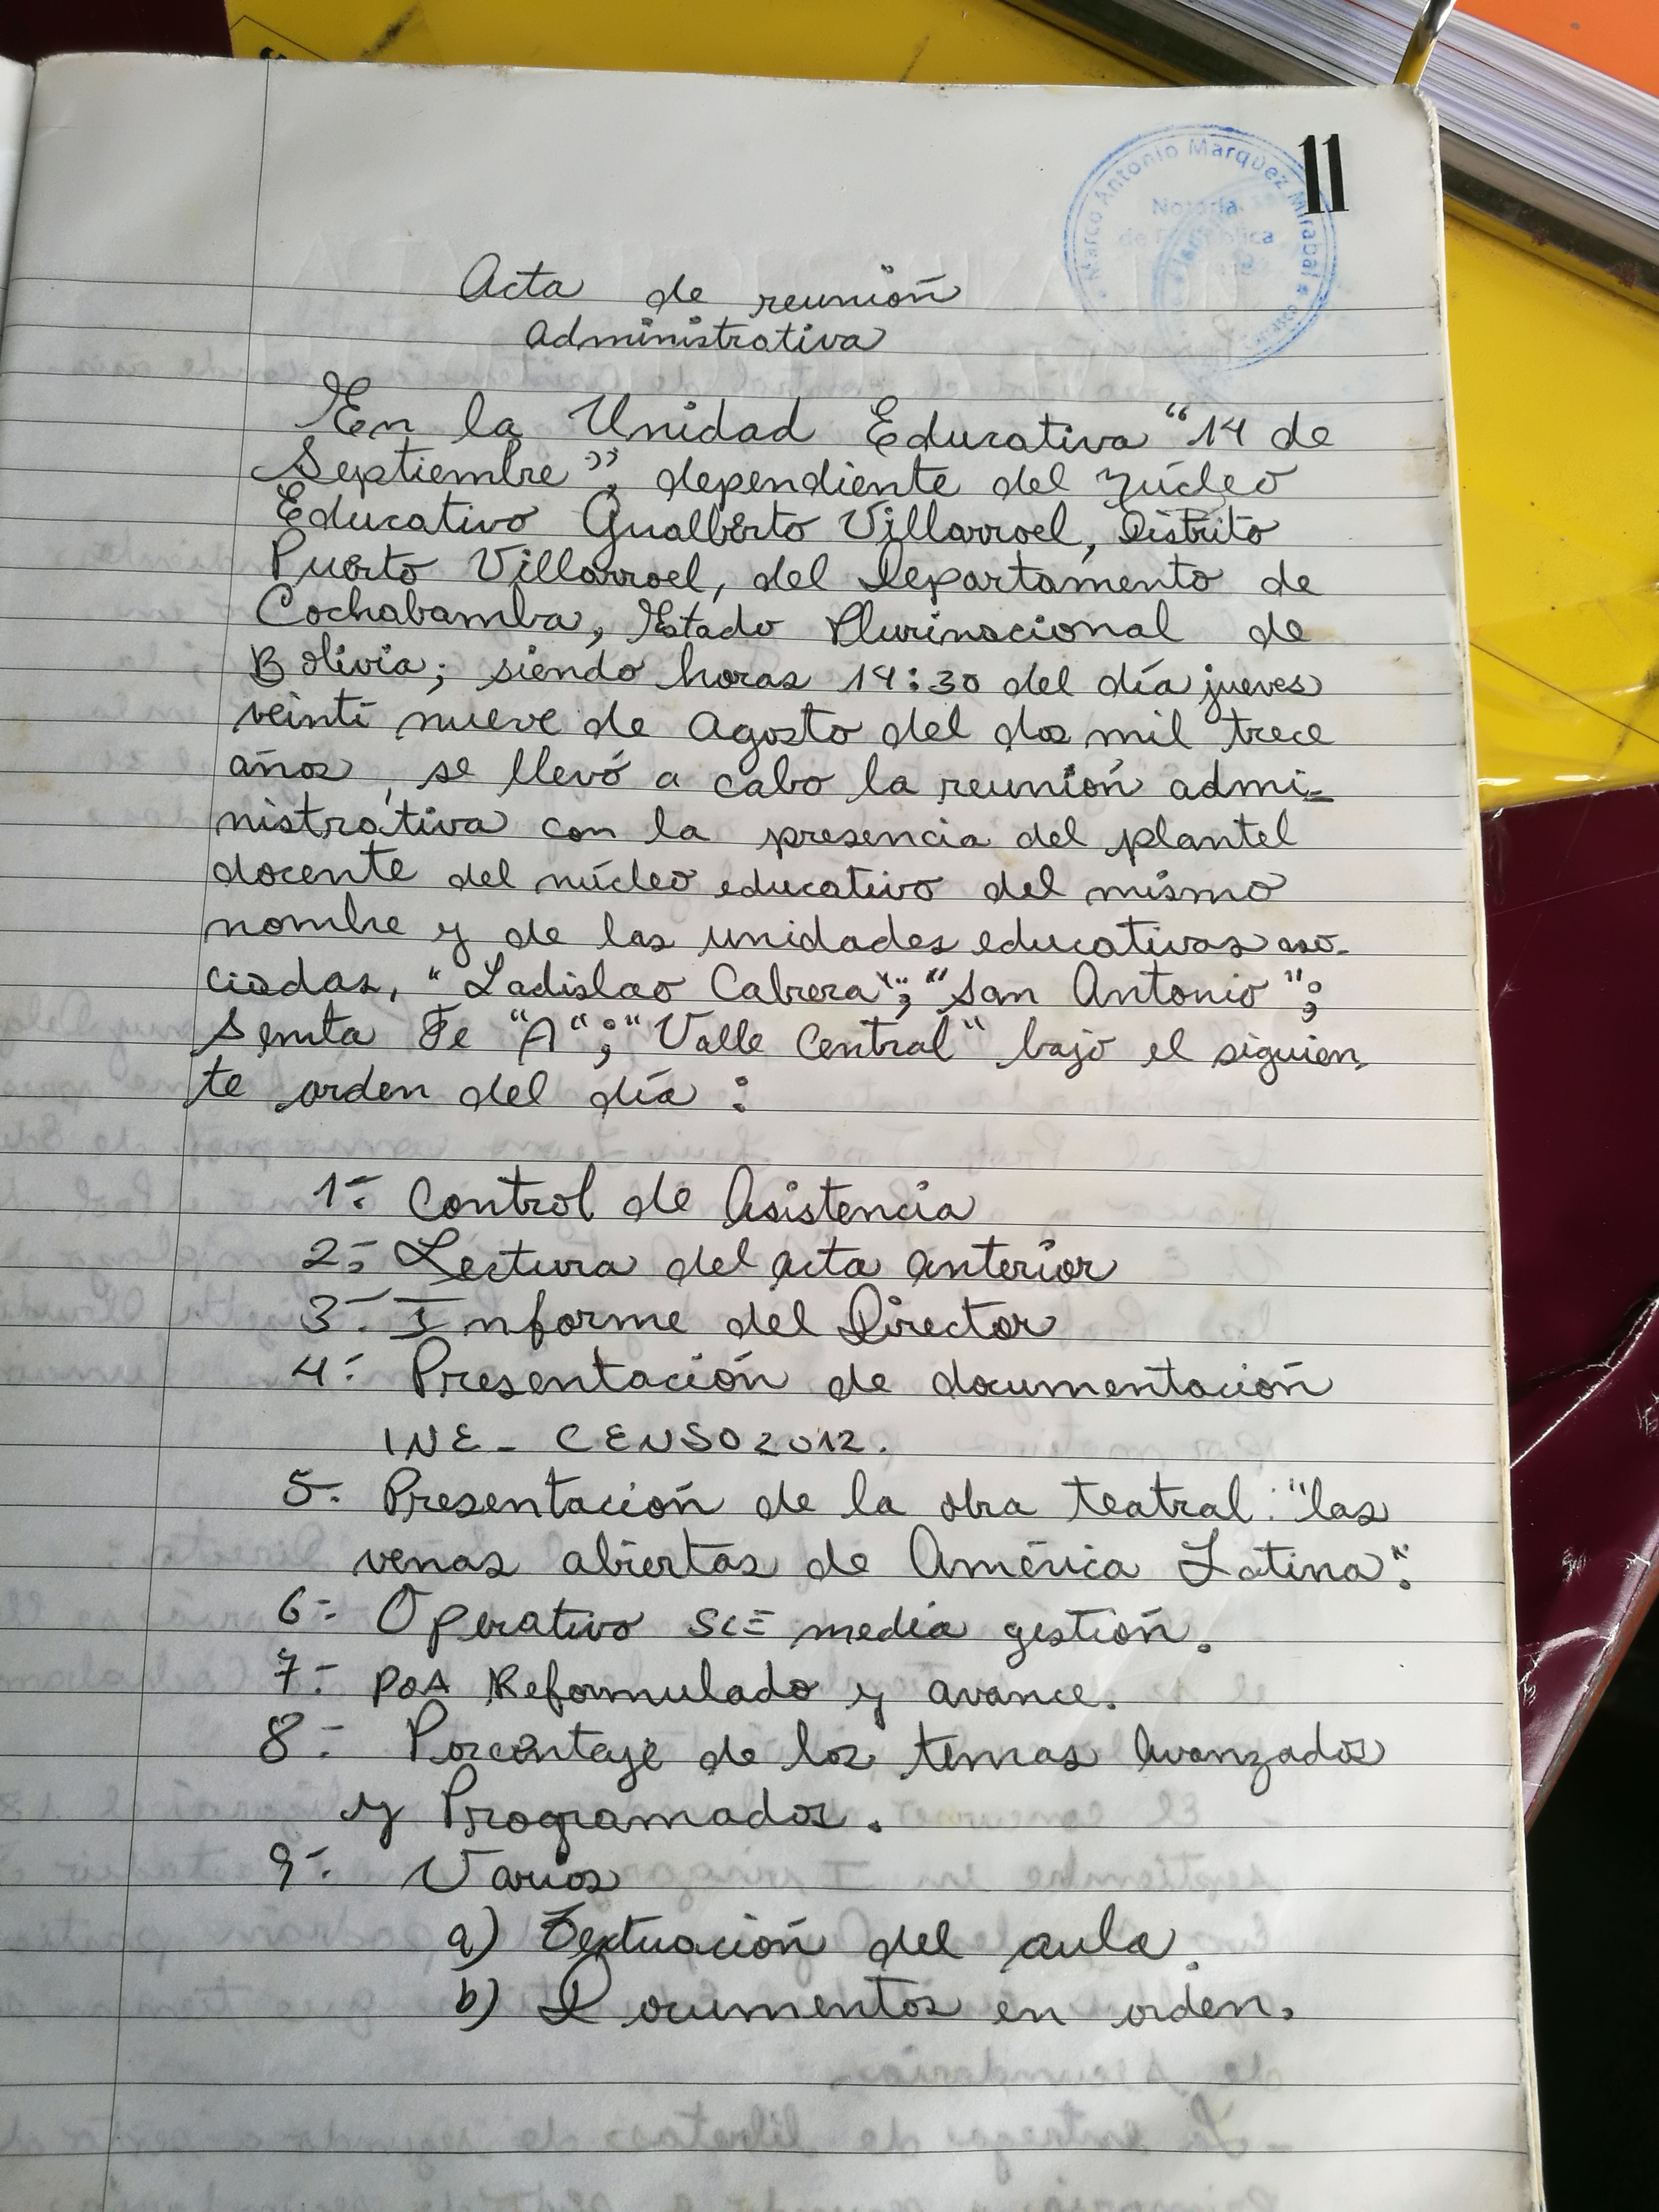 11
Marco Antonio Marquez Mirabal
Notaría
de Fe Pública
Acta de reunión
Administrativa
En la Unidad Educativa “14 de
Septiembre”; dependiente del Núcleo
Educativo Gualberto Villarroel, Distrito
Puerto Villarroel, del Departamento de
Cochabamba, Estado Plurinacional de
Bolivia; siendo horas 14:30 del día jueves
veinti nueve de Agosto del dos mil trece
años, se llevó a cabo la reunión admi-
nistrativa con la presencia del plantel
docente del núcleo educativo del mismo
nombre y de las unidades educativas aso-
ciadas, "Ladislao Cabrera"; "San Antonio";
Santa Fe "A"; "Valle Central" bajo el siguien
te orden del día:
1.- Control de Asistencia
2.- Lectura del acta anterior
3.- Informe del Director
4.- Presentación de documentación
INE - CENSO 2012.
5.- Presentación de la obra teatral: "las
venas abiertas de América Latina".
6.- Operativo SIE media gestión.
7.- POA Reformulado y avance.
8.- Porcentaje de los temas Avanzados
y Programados.
9.- Varios
a) Textuación del aula.
b) Documentos en orden.